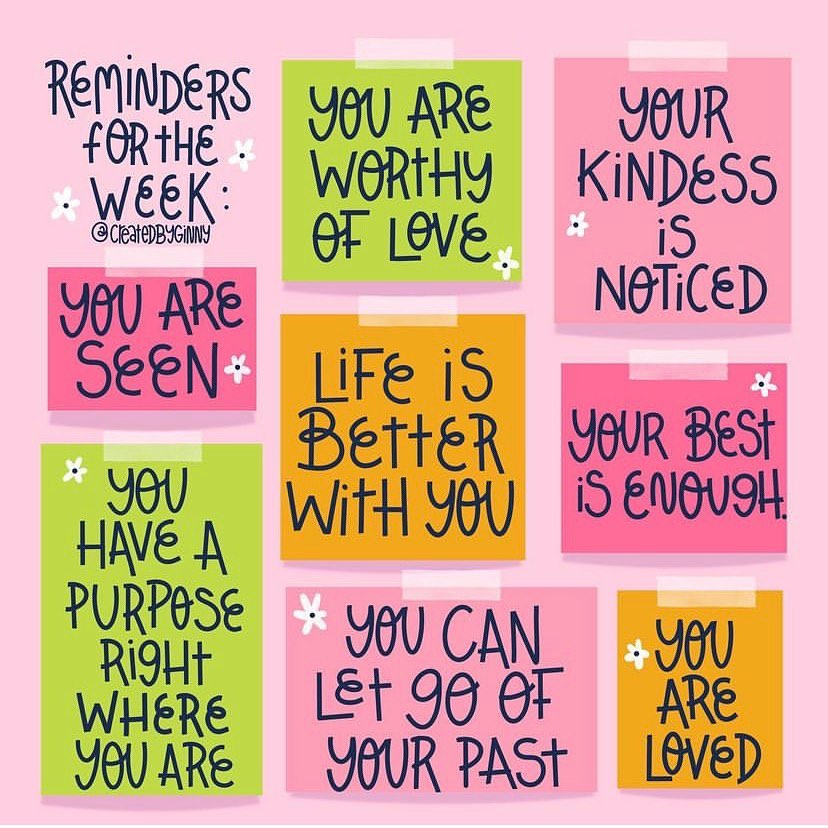 REMINDERS
FOR THE
WEEK:
@CREATEDBYGINNY
YOU ARE
WORTHY
OF LOVE
YOUR
KINDESS
IS
NOTICED
YOU ARE
SEEN
LIFE IS
BETTER
WITH YOU
YOUR BEST
IS ENOUGH.
YOU
HAVE A
PURPOSE
RIGHT
WHERE
YOU ARE
YOU CAN
LET GO OF
YOUR PAST
YOU
ARE
LOVED